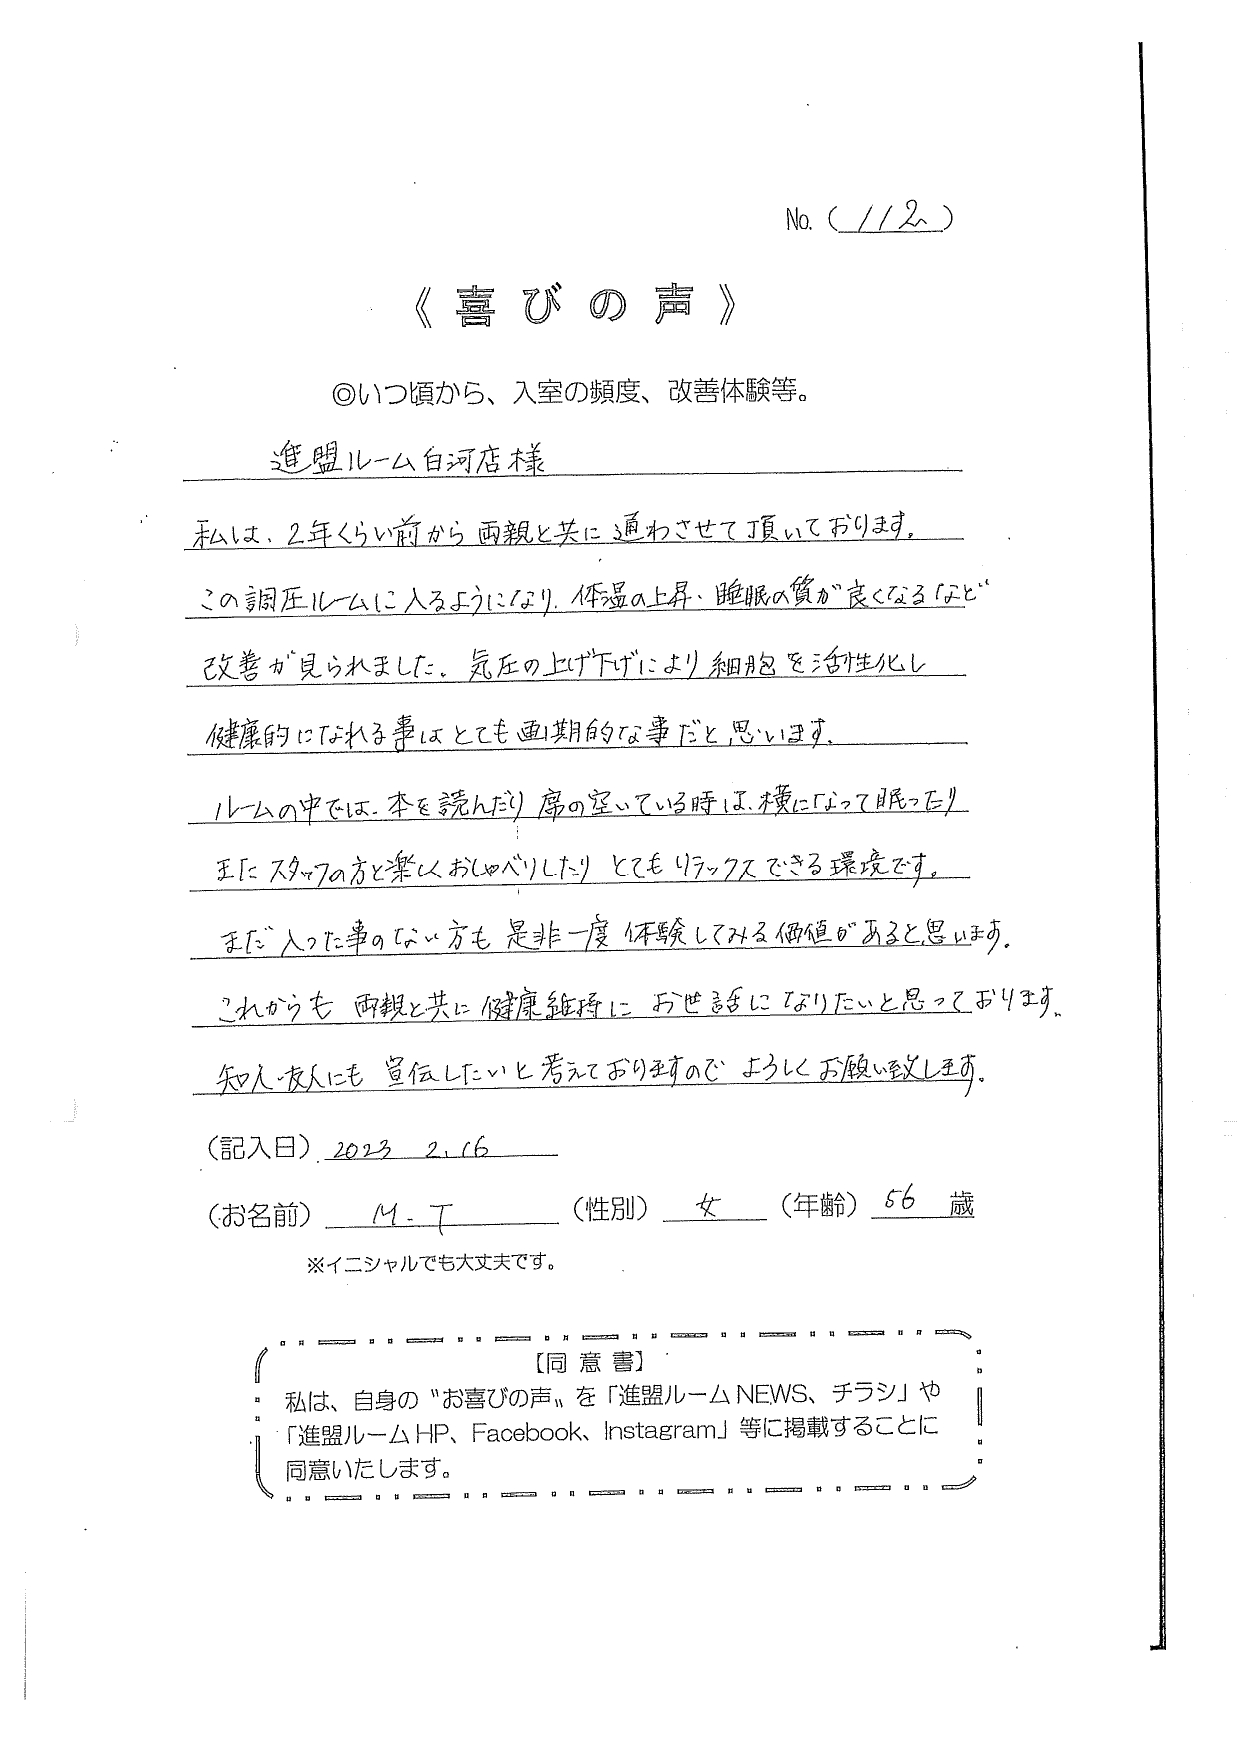 No.（112）
《喜びの声》
◎いつ頃から、入室の頻度、改善体験等。
進盟ルーム白河店様
私は、2年くらい前から両親と共に通わさせて頂いております。
この調圧ルームに入るようになり、体温の上昇、睡眠の質が良くなるなど
改善が見られました。気圧の上げ下げにより細胞を活性化し
健康的になれる事はとても画期的な事だと思います。
ルームの中では、本を読んだり席の空いている時は、横になって眠ったり
またスタッフの方と楽しくおしゃべりしたりとてもリラックスできる環境です。
まだ入った事のない方も是非一度体験してみる価値があると思います。
これからも両親と共に健康維持にお世話になりたいと思っております。
知人・友人にも宣伝したいと考えておりますのでよろしくお願い致します。
（記入日）2023 2.16
（お名前）M.T（性別）女（年齢）56歳
※イニシャルでも大丈夫です。
【同意書】
私は、自身の〝お喜びの声〟を「進盟ルームNEWS、チラシ」や
「進盟ルームHP、Facebook、Instagram」等に掲載することに
同意いたします。